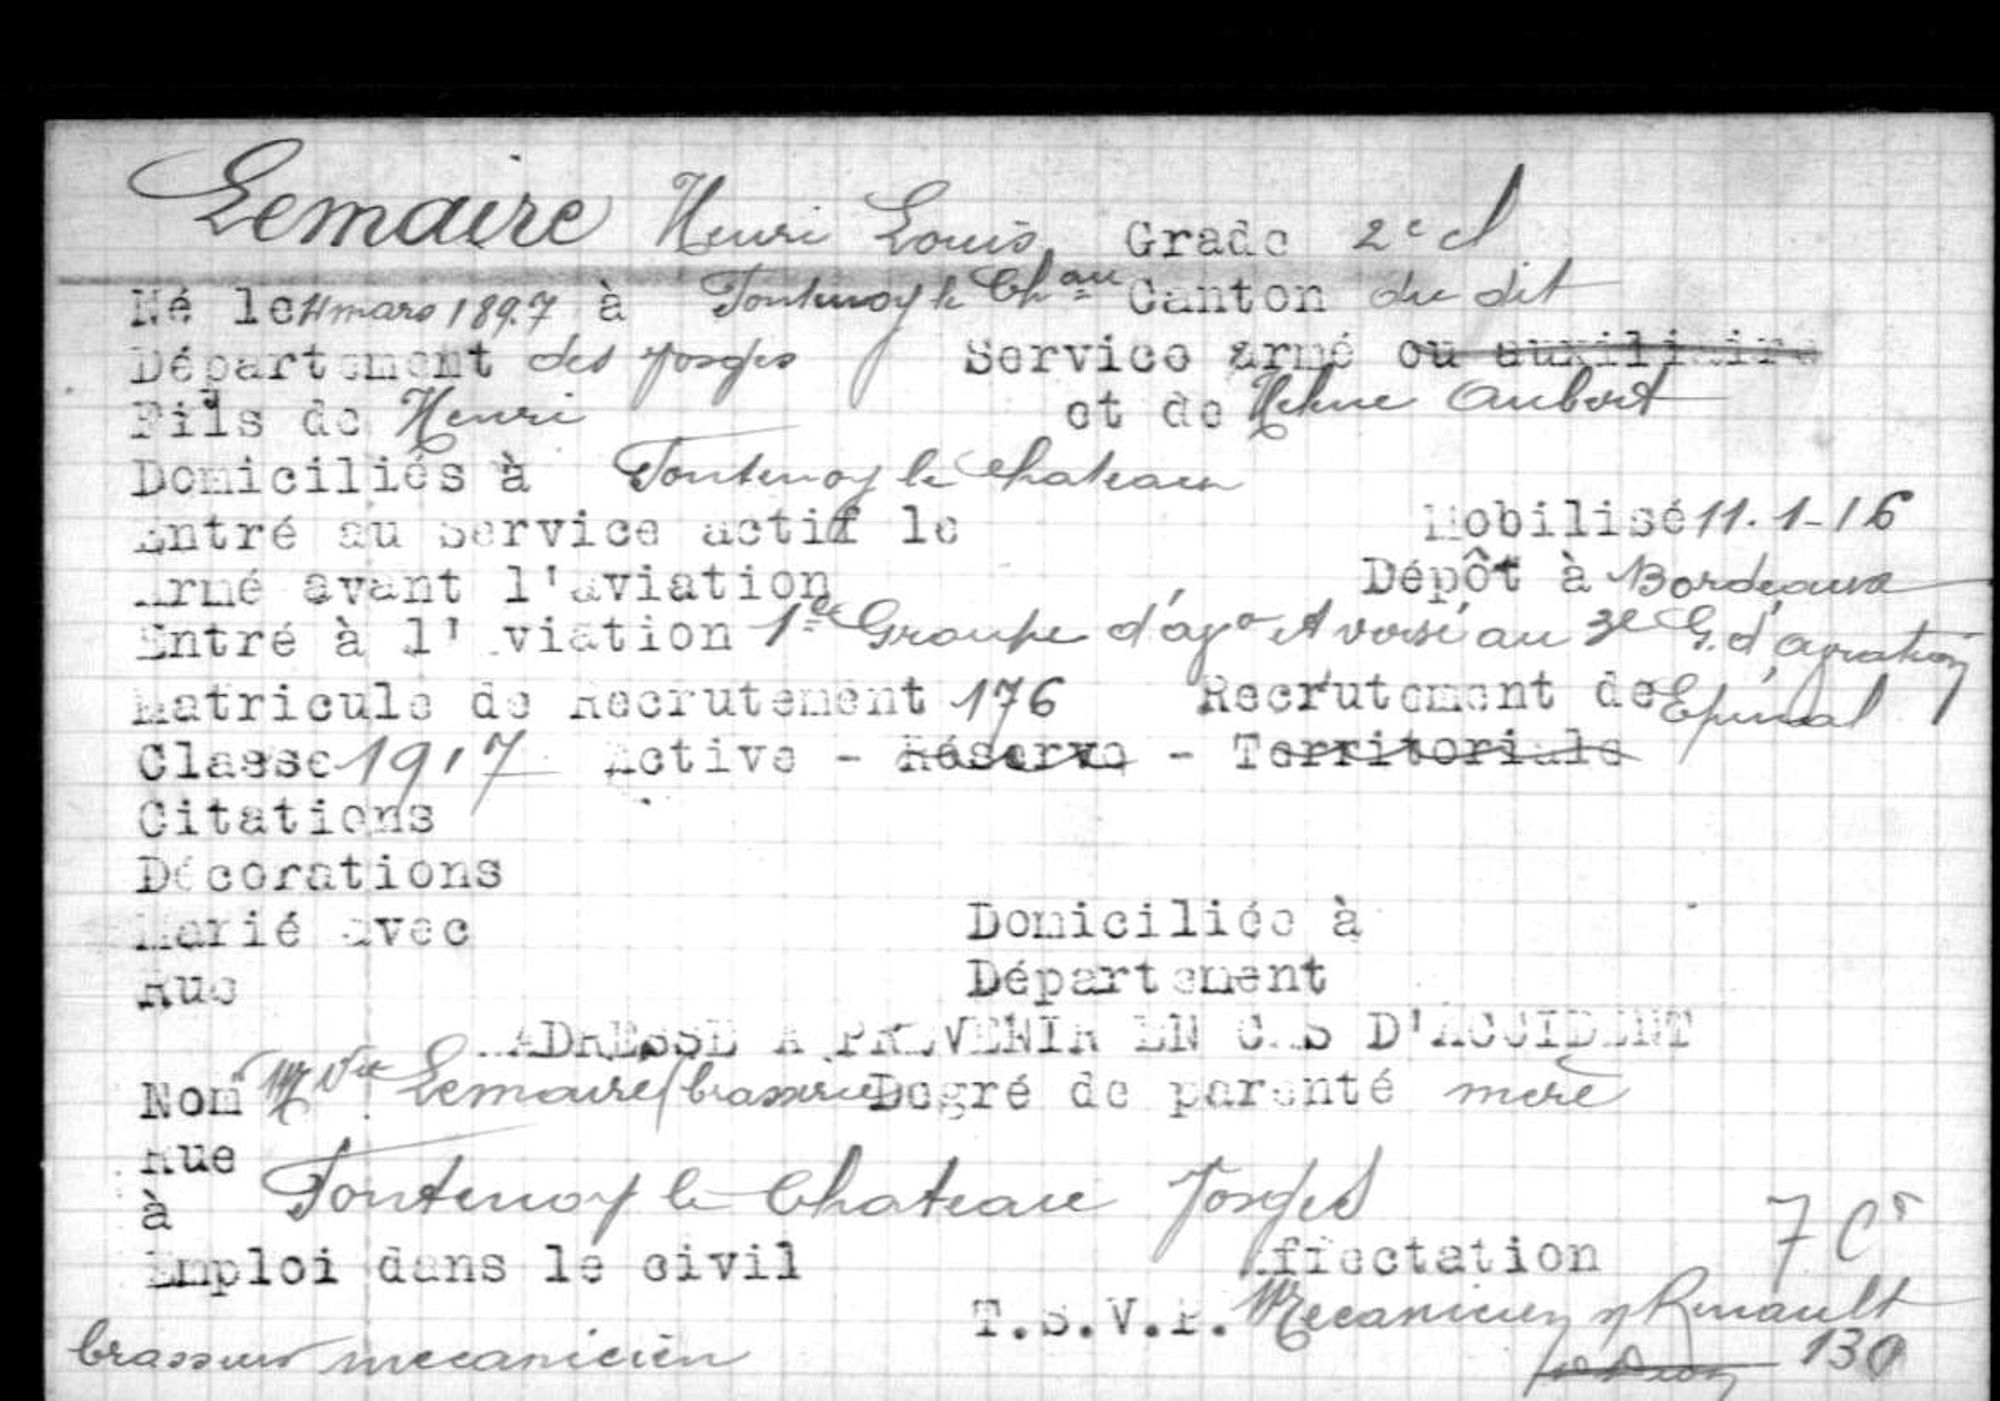 Lemaire Henri Louis Grade 2e cl
Né le 11 mars 1897 à Fontenoy le Chau Canton du dit
Département des Vosges Service armé ou auxiliaire
Fils de Henri et de Helene Aubert
Domiciliés à Fontenoy le Chateau
Entré au Service actif le Mobilisé 11.1-16
Armé avant l'aviation Dépôt à Bordeaux
Entré à l'Aviation 1er Groupe d'a Versé au 3e G. d'aviation
Matricule de Recrutement 176 Recrutement de Epinal
Classe 1917 Active - Réserve - Territoriale
Citations
Décorations
Marié avec Domiciliée à
Rue Département
ADRESSE A PREVENIR EN CAS D'ACCIDENT
Nom Mme Vve Lemaire (brasserie) Degré de parenté mere
Rue
à Fontenoy le Chateau Vosges
Emploi dans le civil Affectation 7 Cr
T.S.V.P. Mecanicien Renault
brasseur mecanicien 130